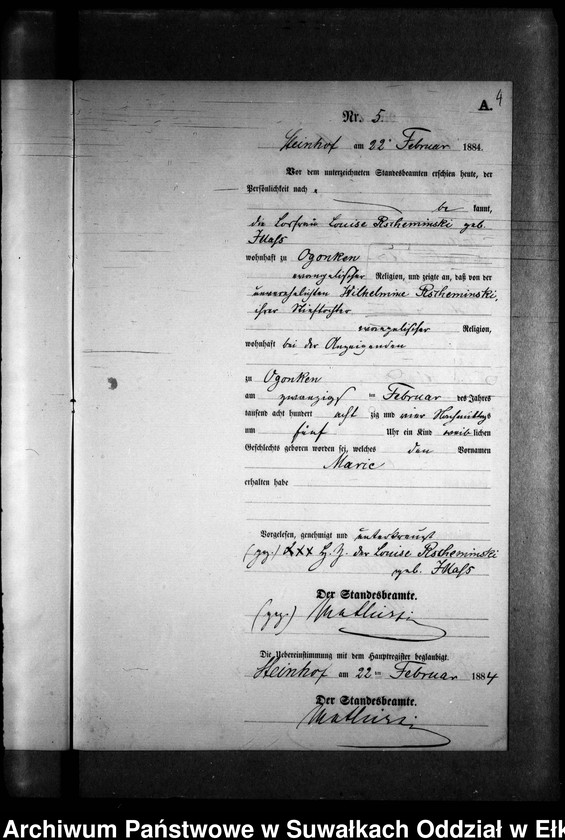 4
A.
Nr. 5.
Steinhof am 22ten Februar 1884.
Vor dem unterzeichneten Standesbeamten erschien heute, der
Persönlichkeit nach
be kannt,
die Losfrau Louise Rscheminski geb.
wohnhaft zu Ogonken
evangelischer Religion, und zeigte an, daß von der
unverehelichten Wilhelmine Rscheminski,
ihrer Stieftochter
evangelischer Religion,
wohnhaft bei der Anzeigenden
zu Ogonken
am zwanzigsten Februar des Jahres
tausend acht hundert acht zig und vier Nachmittags
um fünf Uhr ein Kind weib lichen
Geschlechts geboren worden sei, welches den Vornamen
Marie
erhalten habe
Vorgelesen, genehmigt und unterkreuzt
(gez.) XXX H. Z. der Louise Rscheminski
geb.
Der Standesbeamte.
(gez.)
Die Uebereinstimmung mit dem Hauptregister beglaubigt.
Steinhof am 22ten Februar 1884
Der Standesbeamte.
Archiwum Państwowe w Suwałkach Oddział w Ełk